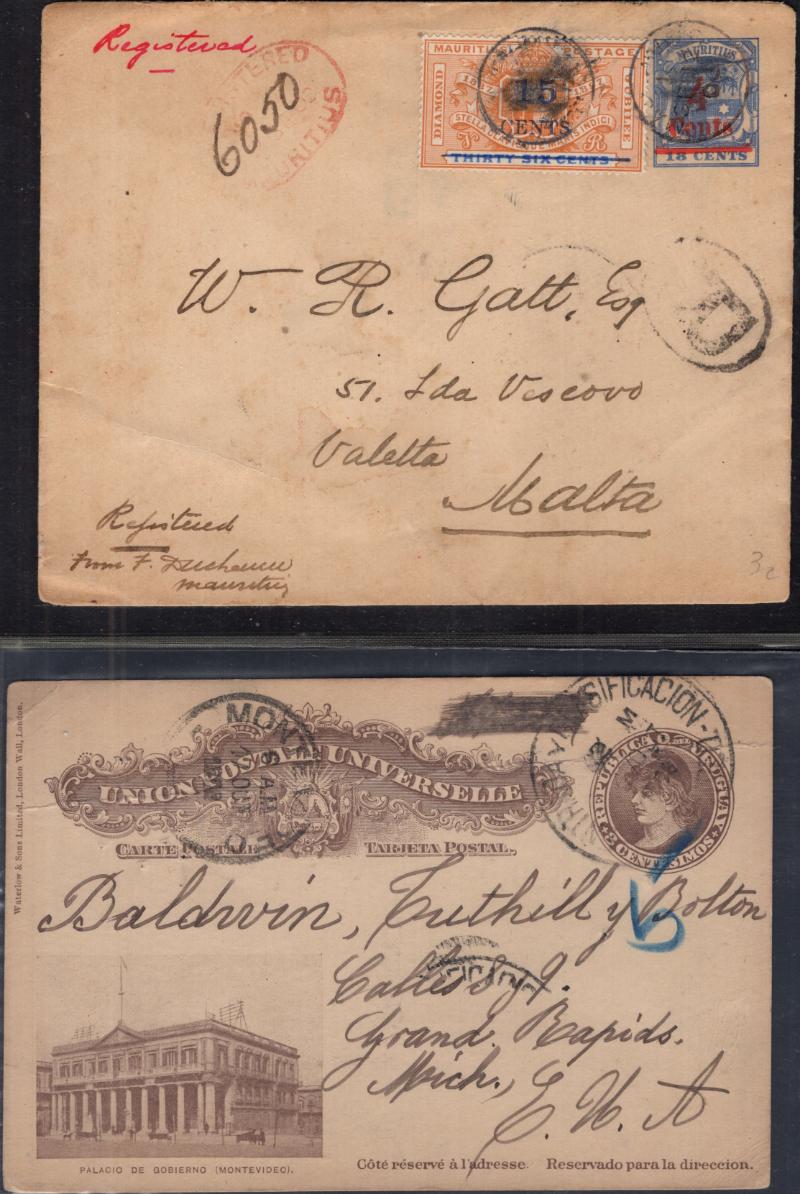 Registered
REGISTERED
MAURITIUS
6050
MAURITIUS POSTAGE
DIAMOND
JUBILEE
15
CENTS
THIRTY SIX CENTS
MAURITIUS
4
Cents
18 CENTS
R
W. R. Gatt, Esq
51. Sda Vescovo
Valetta
Malta
Registered
From F.
Mauritius
3c
Waterlow & Sons Limited, London Wall, London.
MONTEVIDEO
6 AM
UNION POSTAL UNIVERSELLE
CARTE POSTALE TARJETA POSTAL
REPUBLICA O. DEL URUGUAY
3 CENTESIMOS
Baldwin, Tuthill y Bolton
Grand Rapids.
Mich., E. U. A
PALACIO DE GOBIERNO (MONTEVIDEO).
Côté réservé à l'adresse. Reservado para la direccion.